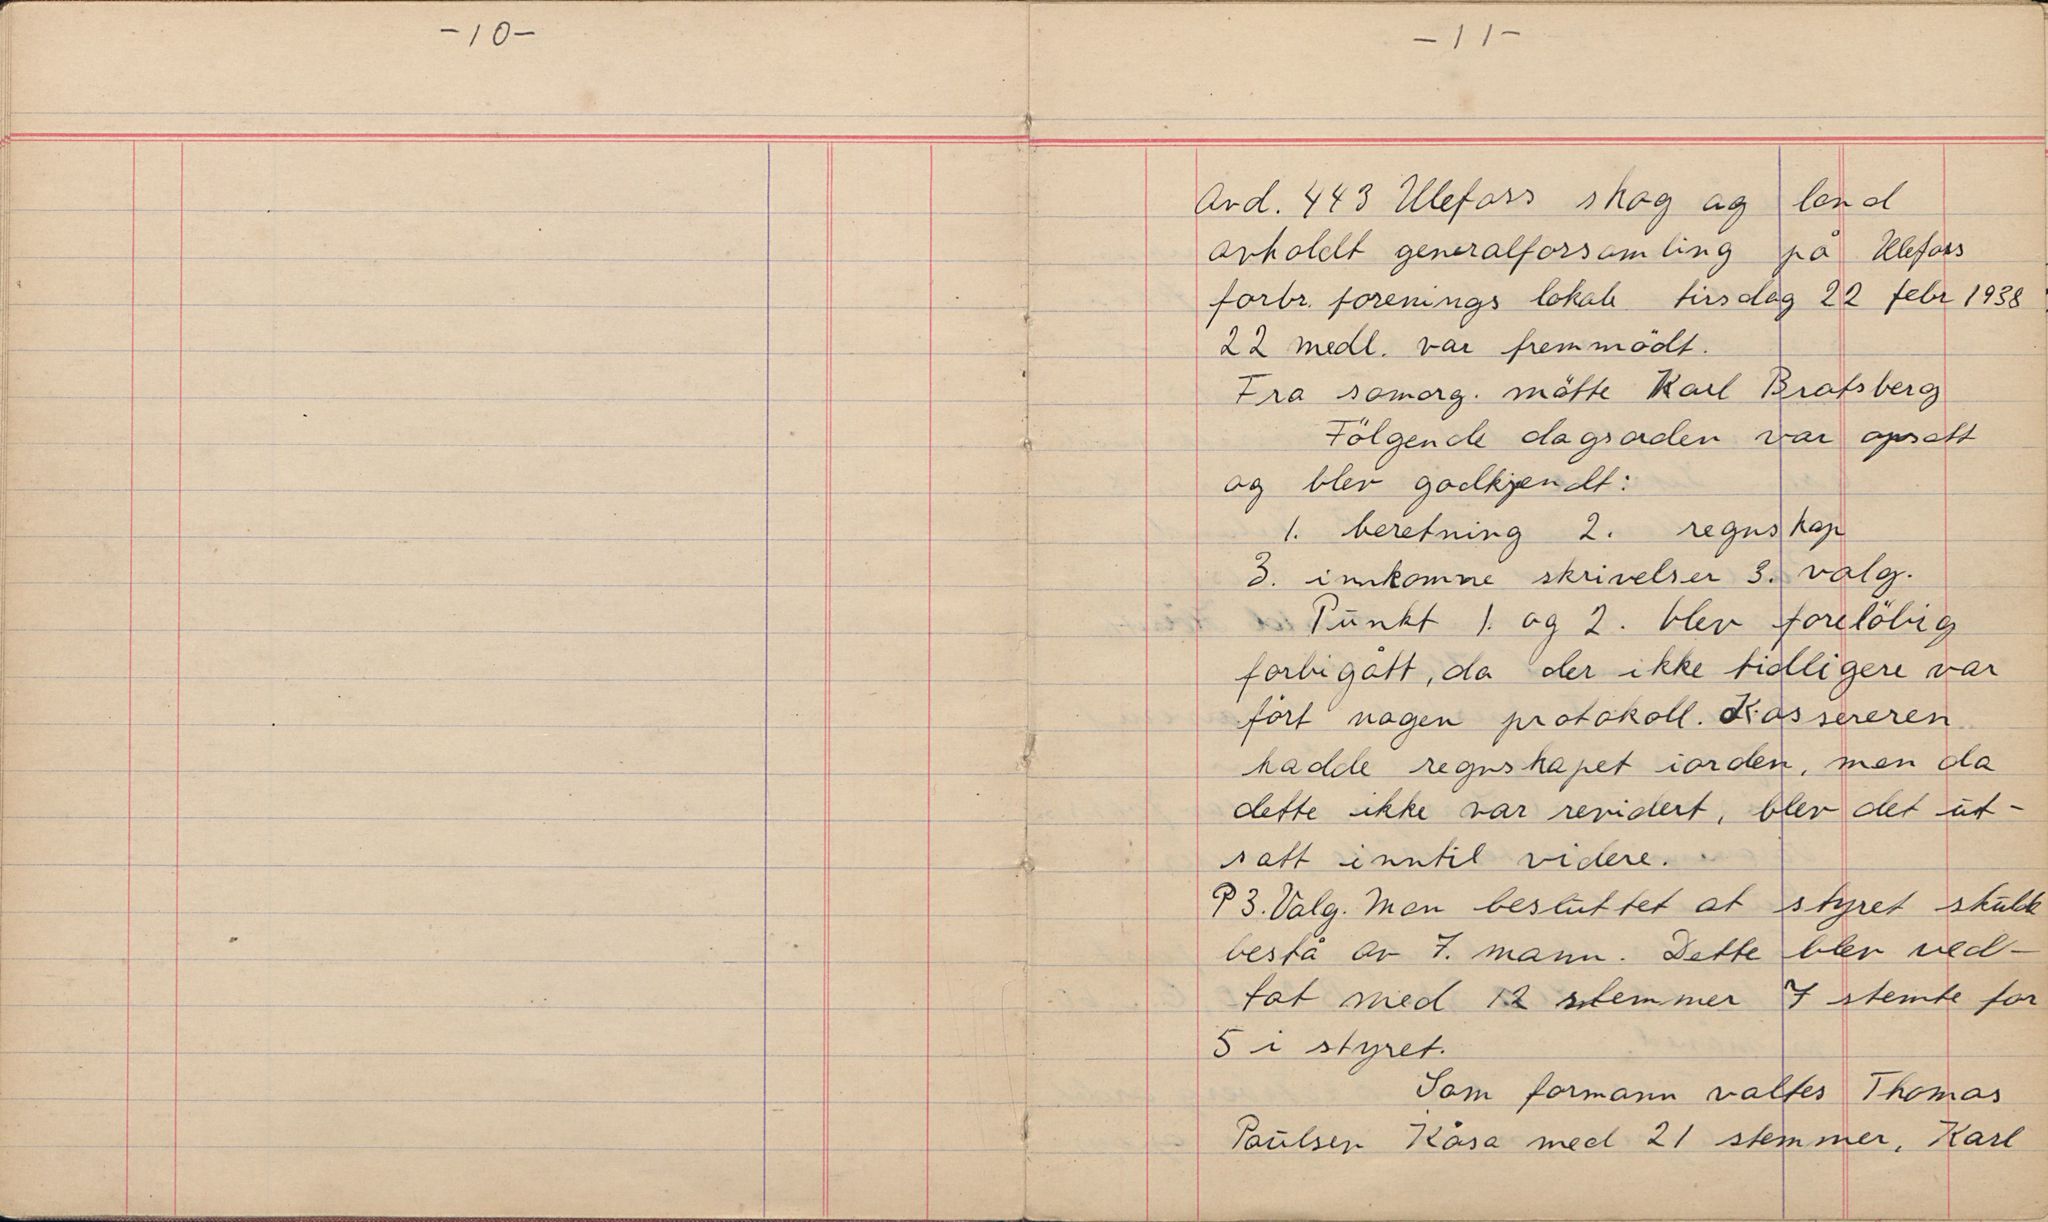 -10-
-11-
Avd. 443 Ulefoss skog og land
avholdt generalforsamling på Ulefoss
forbr. forenings lokale tirsdag 22 febr 1938
22 medl. var fremmödt.
Fra samorg. mötte Karl Bratsberg
Fölgende dagsorden var opsatt
og blev godkjendt:
1. beretning 2. regnskap
3. innkomne skrivelser 3. valg.
Punkt 1. og 2. blev foreløbig
forbigått, da der ikke tidligere var
fört nogen protokoll. Kassereren
hadde regnskapet iorden, men da
dette ikke var revidert, blev det ut-
satt inntil videre.
P 3. Valg. Man besluttet at styret skulde
bestå av 7. mann. Dette blev ved-
tat med 12 stemmer 7 stemte for
5 i styret.
Som formann valtes Thomas
Paulsen Kåsa med 21 stemmer, Karl